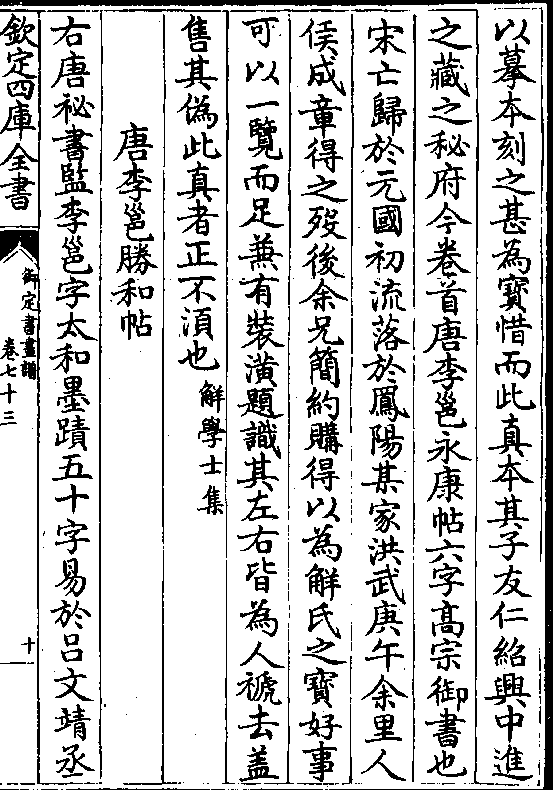 以摹本刻之甚為寶惜而此真本其子友仁紹興中進
之藏之秘府今卷首唐李邕永康帖六字髙宗御書也
宋亡歸於元國初流落於鳳陽某家洪武庚午余里人
侯成章得之歿後余兄簡約購得以為解氏之寶好事
可以一覽而足兼有裝潢題識其左右皆為人褫去盖
售其偽此真者正不湏也解學士集
唐李邕勝和帖
右唐祕書監李邕字太和墨蹟五十字易於呂文靖丞
欽定四庫全書
御定書畫譜
卷七十三
十